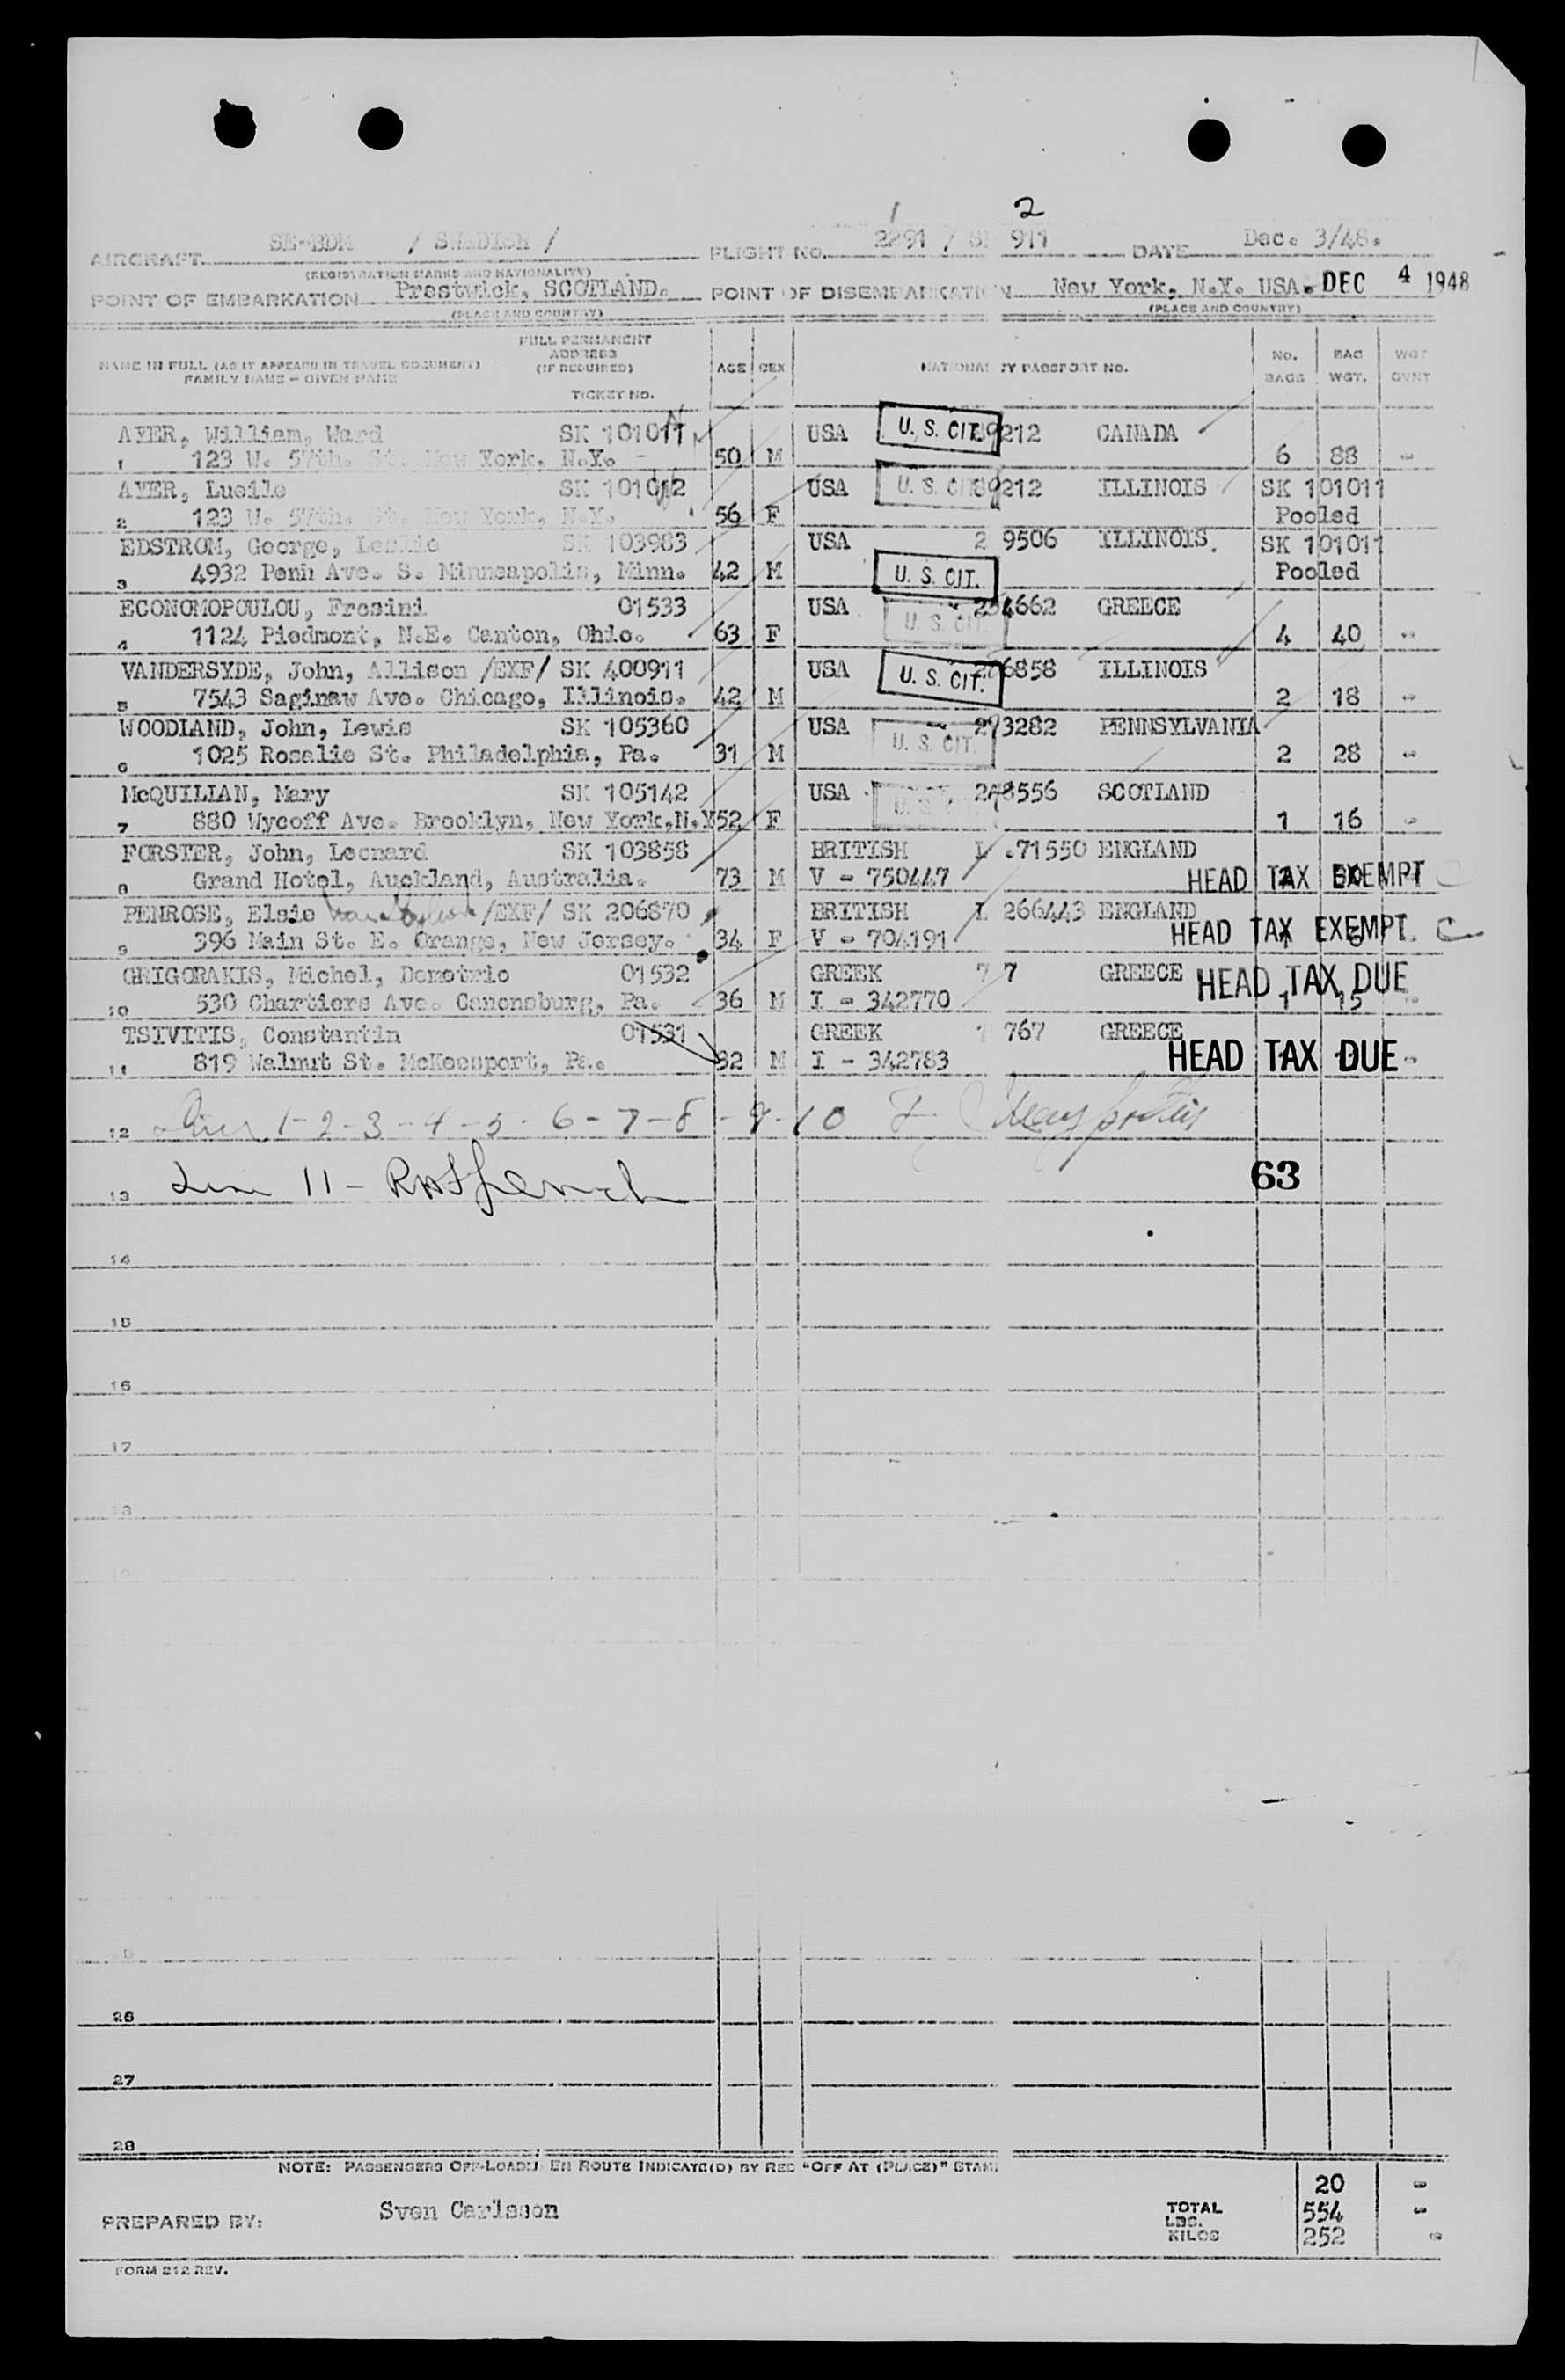 1 2
AIRCRAFT SE-BDM / SWEDISH / FLIGHT NO. 2291 / SK 911 DATE Dec. 3/48.
(REGISTRATION MARKS AND NATIONALITY)
POINT OF EMBARKATION Prestwick, SCOTLAND. POINT OF DISEMBARKATION New York, N.Y. USA. DEC 4 1948
(PLACE AND COUNTRY) (PLACE AND COUNTRY)
NAME IN FULL (AS IT APPEARS IN TRAVEL DOCUMENT) FAMILY NAME – GIVEN NAME FULL PERMANENT ADDRESS (IF REQUIRED) TICKET NO. AGE SEX NATIONALITY PASSPORT NO. No. BAGS BAG WGT. WGT GVNT
AYER, William, Ward SK 101011 USA U. S. CIT. 39212 CANADA
1 123 W. 57th. St. New York, N.Y. 50 M 6 88 -
AYER, Lucile SK 101012 USA U. S. CIT. 39212 ILLINOIS SK 101011
2 123 W. 57th. St. New York, N.Y. 56 F Pooled
EDSTROM, George, Leslie SK 103983 USA 2 9506 ILLINOIS. SK 101011
3 4932 Penn Ave. S. Minneapolis, Minn. 42 M U. S. CIT. Pooled
ECONOMOPOULOU, Frosini 01533 USA U. S. CIT. 4662 GREECE
4 1124 Piedmont, N.E. Canton, Ohio. 63 F 4 40 -
VANDERSYDE, John, Allison /EXF/ SK 400911 USA U. S. CIT. 6858 ILLINOIS
5 7543 Saginaw Ave. Chicago, Illinois. 42 M 2 18 -
WOODLAND, John, Lewis SK 105360 USA U. S. CIT. 3282 PENNSYLVANIA
6 1025 Rosalie St. Philadelphia, Pa. 31 M 2 28 -
McQUILIAN, Mary SK 105142 USA U. S. 8556 SCOTLAND
7 880 Wycoff Ave. Brooklyn, New York,N.Y 52 F 1 16 -
FORSTER, John, Leonard SK 103858 BRITISH L .71550 ENGLAND
8 Grand Hotel, Auckland, Australia. 73 M V - 750447 HEAD TAX EXEMPT
PENROSE, Elsie /EXF/ SK 206870 BRITISH L 266443 ENGLAND
9 396 Main St. E. Orange, New Jersey. 34 F V - 704191 HEAD TAX EXEMPT C
GRIGORAKIS, Michel, Demetrio 01532 GREEK 7 7 GREECE HEAD TAX DUE
10 530 Chartiers Ave. Canonsburg, Pa. 36 M I - 342770 1 15 -
TSIVITIS, Constantin 01531 GREEK 1 767 GREECE
11 819 Walnut St. McKeesport, Pa. 32 M I - 342783 HEAD TAX DUE -
12 1-2-3-4-5-6-7-8-9-10
13 Line 11 - 63
14
15
16
17
18
19
26
27
28
NOTE: PASSENGERS OFF-LOADED EN ROUTE INDICATE(D) BY RED "OFF AT (PLACE)" STAMP
20 -
PREPARED BY: Sven Carlsson TOTAL LBS. 554 -
KILOS 252 -
FORM 212 REV.